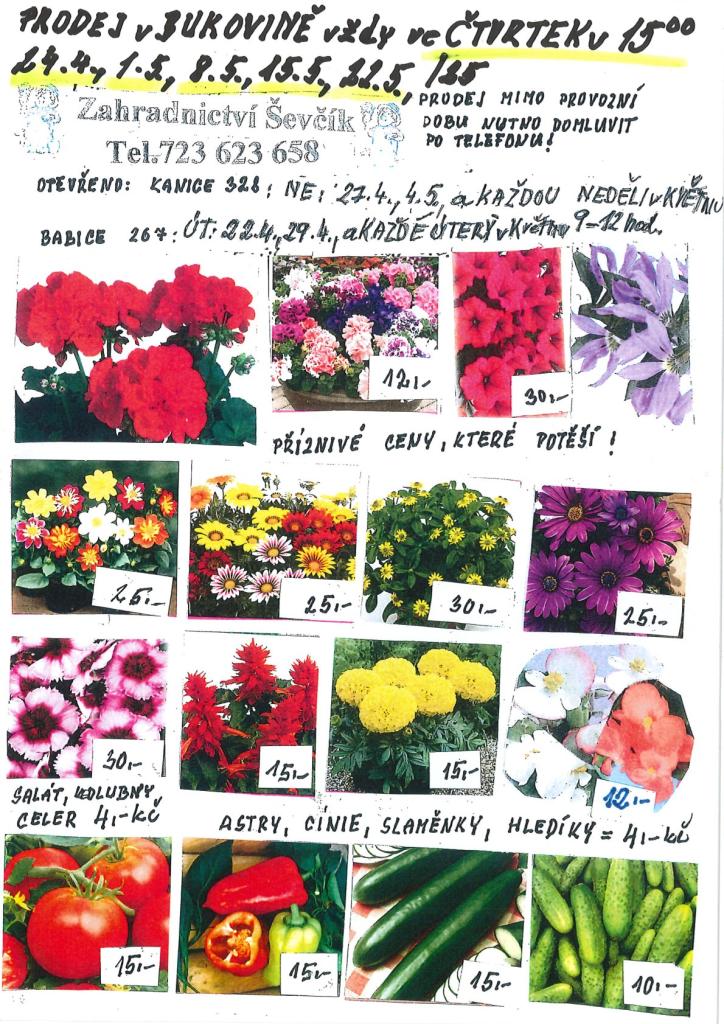 PRODEJ v BUKOVINĚ vždy ve ČTVRTEK v 15⁰⁰
24.4., 1.5., 8.5., 15.5., 22.5.,
Zahradnictví Ševčík
Tel.723 623 658
PRODEJ MIMO PROVOZNÍ
DOBU NUTNO DOMLUVIT
PO TELEFONU!
OTEVŘENO: KANICE 328: NE: 27.4., 4.5., a KAŽDOU NEDĚLI v KVĚTNU
BABICE 267: ÚT: 22.4., 29.4., a KAŽDÉ ÚTERÝ v Květnu 9-12 hod.
12,-
30,-
PŘÍZNIVÉ CENY, KTERÉ POTĚŠÍ!
25,-
25,-
30,-
25,-
30,-
15,-
15,-
12,-
SALÁT, KEDLUBNY,
CELER 4,-kč
ASTRY, CÍNIE, SLAMĚNKY, HLEDÍKY = 4,-kč
15,-
15,-
15,-
10,-